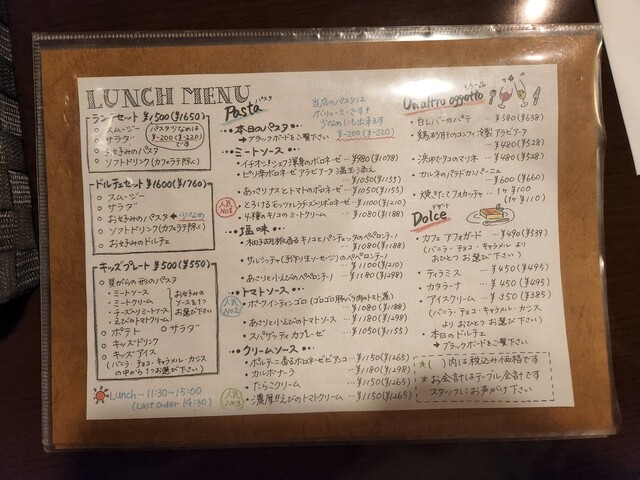 LUNCH MENU
ランチセット ¥1500(¥1650)
○ スムージー
○ サラダ
○ お好みのパスタ
○ ソフトドリンク(カフェラテ除く)
パスタ少なめは
¥-200(¥-220)
です
ドルチェセット ¥1600(¥1760)
○ スムージー
○ サラダ
○ お好みのパスタ
○ ソフトドリンク(カフェラテ除く)
○ お好みのドルチェ
キッズプレート ¥500(¥550)
○ 貝がらの形のパスタ
・ミートソース
・ミートクリーム
・チーズ入りミートソース
・えびのトマトソース
お好みの
ソースを1つ
お選び下さい
○ ポテト ○ サラダ
○ キッズドリンク
○ キッズアイス
(バニラ・チョコ・キャラメル・カシス
の中から1つお選び下さい)
Lunch 11:30~15:00
(Last order 14:30)
Pasta パスタ
当店のパスタは
ボリューミーです!
少なめにも出来ます
¥-200(¥-220)
本日のパスタ
→ブラックボードをご覧下さい
ミートソース
・イチオシ!シェフ渾身のボロネーゼ …¥980(¥1078)
・ピリ辛ボロネーゼ アラビアータ
…¥1050(¥1155)
・あさりとナスとトマトのボロネーゼ …¥1050(¥1155)
人気No1
・とろけるモッツァレラチーズのボロネーゼ …¥1100(¥1210)
・4種のキノコのミートクリーム …¥1080(¥1188)
塩味
・柚子胡椒香るキノコとパンチェッタのペペロンチーノ
…¥1080(¥1188)
・サルシッチャ(手作り生ソーセージ)のペペロンチーノ
…¥1100(¥1210)
・あさりと小えびのペペロンチーノ …¥1180(¥1298)
トマトソース
人気No2
・ポークインティンゴロ(ゴロゴロ豚バラ肉のトマト煮)
…¥1080(¥1188)
・あさりと小えびのトマトソース …¥1180(¥1298)
・スパゲッティ カプレーゼ …¥1050(¥1155)
クリームソース
・ポルチーニ香るボロネーゼビアンコ …¥1150(¥1265)
・カルボナーラ …¥1180(¥1298)
・たらこクリーム …¥1150(¥1265)
人気No3
・濃厚!!えびのトマトクリーム …¥1150(¥1265)
Un altro oggetto
・白レバーのパテ …¥580(¥638)
・鶏砂肝のコンフィ 冷製アラビアータ
…¥480(¥528)
・タコのマリネ …¥480(¥528)
・カルネのパテドカンパーニュ
…¥600(¥660)
・焼きたてフォカッチャ …1ヶ ¥100
(1ヶ ¥110)
Dolce
・カフェ アフォガード …¥490(¥539)
(バニラ・チョコ・キャラメル より
おひとつ お選び下さい)
・ティラミス …¥450(¥495)
・カタラーナ …¥450(¥495)
・アイスクリーム …¥350(¥385)
(バニラ・チョコ・キャラメル・カシス
よりおひとつお選び下さい)
・本日のドルチェ
→ブラックボードをご覧下さい
★( )内は税込み価格です
★お会計はテーブル会計です
スタッフにお声がけ下さい